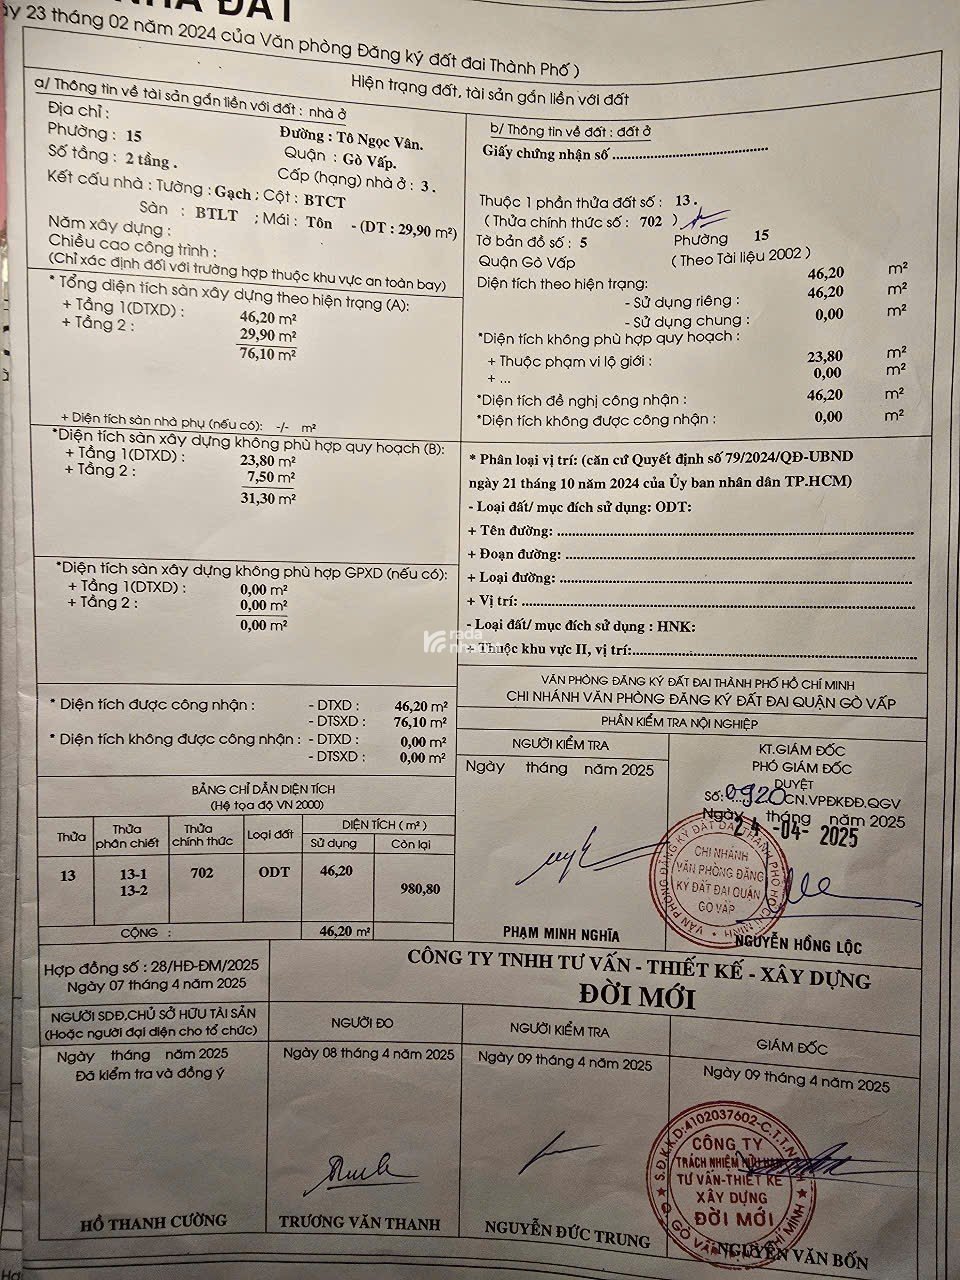 NHÀ ĐẤT
ày 23 tháng 02 năm 2024 của Văn phòng Đăng ký đất đai Thành Phố )
Hiện trạng đất, tài sản gắn liền với đất
a/ Thông tin về tài sản gắn liền với đất : nhà ở
Địa chỉ :
Đường : Tô Ngọc Vân.
Phường : 15
Quận : Gò Vấp.
Số tầng : 2 tầng .
Cấp (hạng) nhà ở : 3 .
Kết cấu nhà : Tường : Gạch ; Cột : BTCT
Sàn : BTLT ; Mái : Tôn - (DT : 29,90 m²)
Năm xây dựng :
Chiều cao công trình :
(Chỉ xác định đối với trường hợp thuộc khu vực an toàn bay)
* Tổng diện tích sàn xây dựng theo hiện trạng (A):
+ Tầng 1(DTXD) : 46,20 m²
+ Tầng 2 : 29,90 m²
76,10 m²
+ Diện tích sàn nhà phụ (nếu có): -/- m²
*Diện tích sàn xây dựng không phù hợp quy hoạch (B):
+ Tầng 1(DTXD) : 23,80 m²
+ Tầng 2 : 7,50 m²
31,30 m²
*Diện tích sàn xây dựng không phù hợp GPXD (nếu có):
+ Tầng 1(DTXD) : 0,00 m²
+ Tầng 2 : 0,00 m²
0,00 m²
* Diện tích được công nhận : - DTXD : 46,20 m²
- DTSXD : 76,10 m²
* Diện tích không được công nhận : - DTXD : 0,00 m²
- DTSXD : 0,00 m²
b/ Thông tin về đất : đất ở
Giấy chứng nhận số ........................................
Thuộc 1 phần thửa đất số : 13 .
( Thửa chính thức số : 702 )
Tờ bản đồ số : 5 Phường 15
Quận Gò Vấp ( Theo Tài liệu 2002 )
Diện tích theo hiện trạng: 46,20 m²
- Sử dụng riêng : 46,20 m²
- Sử dụng chung : 0,00 m²
*Diện tích không phù hợp quy hoạch :
+ Thuộc phạm vi lộ giới : 23,80 m²
+ ... 0,00 m²
*Diện tích đề nghị công nhận : 46,20 m²
*Diện tích không được công nhận : 0,00 m²
* Phân loại vị trí: (căn cứ Quyết định số 79/2024/QĐ-UBND
ngày 21 tháng 10 năm 2024 của Ủy ban nhân dân TP.HCM)
- Loại đất/ mục đích sử dụng: ODT:
+ Tên đường: ........................................
+ Đoạn đường: ........................................
+ Loại đường: ........................................
+ Vị trí: ........................................
- Loại đất/ mục đích sử dụng : HNK:
+ Thuộc khu vực II, vị trí:........................................
rada
VĂN PHÒNG ĐĂNG KÝ ĐẤT ĐAI THÀNH PHỐ HỒ CHÍ MINH
CHI NHÁNH VĂN PHÒNG ĐĂNG KÝ ĐẤT ĐAI QUẬN GÒ VẤP
PHẦN KIỂM TRA NỘI NGHIỆP
NGƯỜI KIỂM TRA
Ngày tháng năm 2025
PHẠM MINH NGHĨA
KT.GIÁM ĐỐC
PHÓ GIÁM ĐỐC
DUYỆT
Số: 0920 CN.VPĐKĐĐ.QGV
Ngày tháng năm 2025
24 -04- 2025
VĂN PHÒNG ĐĂNG KÝ ĐẤT ĐAI THÀNH PHỐ HỒ CHÍ MINH
CHI NHÁNH
VĂN PHÒNG ĐĂNG
KÝ ĐẤT ĐAI QUẬN
GÒ VẤP
NGUYỄN HỒNG LỘC
BẢNG CHỈ DẪN DIỆN TÍCH
(Hệ tọa độ VN 2000)
Thửa Thửa phân chiết Thửa chính thức Loại đất DIỆN TÍCH ( m² )
Sử dụng Còn lại
13 13-1 702 ODT 46,20
13-2 980,80
CỘNG : 46,20 m²
Hợp đồng số : 28/HĐ-ĐM/2025
Ngày 07 tháng 4 năm 2025
CÔNG TY TNHH TƯ VẤN - THIẾT KẾ - XÂY DỰNG
ĐỜI MỚI
NGƯỜI SDĐ,CHỦ SỞ HỮU TÀI SẢN
(Hoặc người đại diện cho tổ chức)
Ngày tháng năm 2025
Đã kiểm tra và đồng ý
HỒ THANH CƯỜNG
NGƯỜI ĐO
Ngày 08 tháng 4 năm 2025
TRƯƠNG VĂN THANH
NGƯỜI KIỂM TRA
Ngày 09 tháng 4 năm 2025
NGUYỄN ĐỨC TRUNG
GIÁM ĐỐC
Ngày 09 tháng 4 năm 2025
S.Đ.K.K.D:4102037602-C.T.T.N
CÔNG TY
TRÁCH NHIỆM HỮU HẠN
TƯ VẤN-THIẾT KẾ
XÂY DỰNG
ĐỜI MỚI
NGUYỄN VĂN BỐN